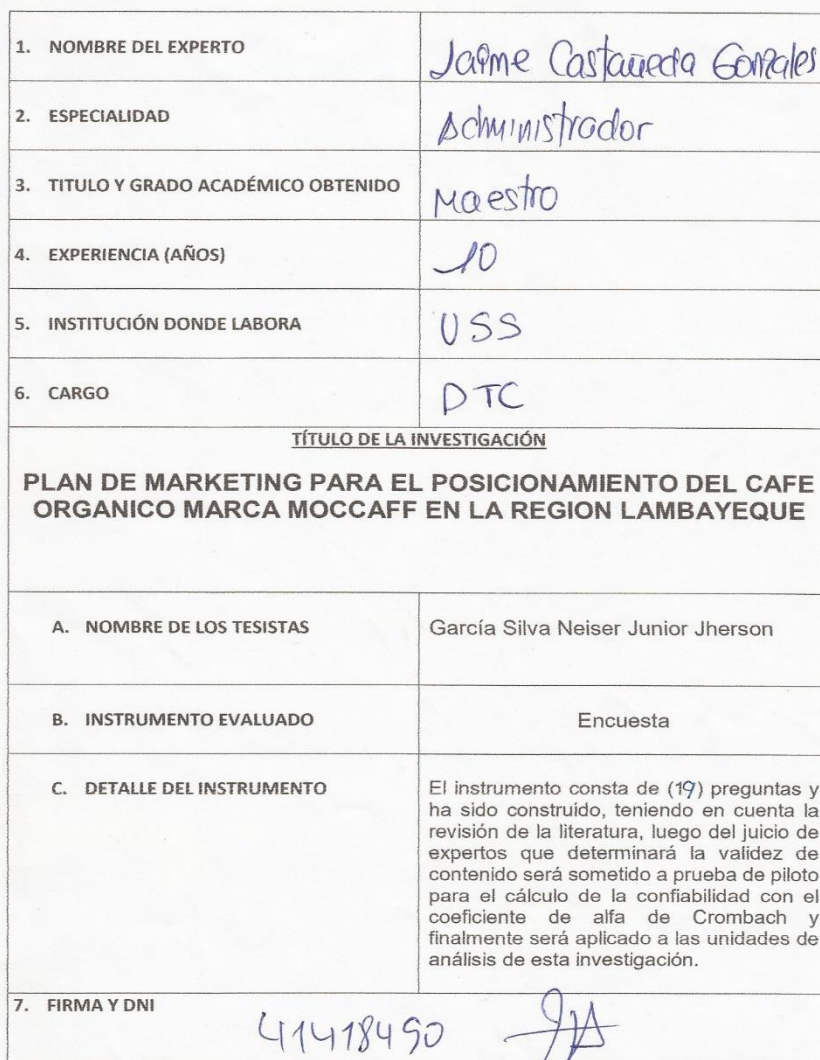 1. NOMBRE DEL EXPERTO
Jaime Castañeda Gonzales
2. ESPECIALIDAD
Administrador
3. TITULO Y GRADO ACADÉMICO OBTENIDO
Maestro
4. EXPERIENCIA (AÑOS)
10
5. INSTITUCIÓN DONDE LABORA
USS
6. CARGO
DTC
TÍTULO DE LA INVESTIGACIÓN
PLAN DE MARKETING PARA EL POSICIONAMIENTO DEL CAFE
ORGANICO MARCA MOCCAFF EN LA REGION LAMBAYEQUE
A. NOMBRE DE LOS TESISTAS
García Silva Neiser Junior Jherson
B. INSTRUMENTO EVALUADO
Encuesta
C. DETALLE DEL INSTRUMENTO
El instrumento consta de (19) preguntas y
ha sido construido, teniendo en cuenta la
revisión de la literatura, luego del juicio de
expertos que determinará la validez de
contenido será sometido a prueba de piloto
para el cálculo de la confiabilidad con el
coeficiente de alfa de Crombach y
finalmente será aplicado a las unidades de
análisis de esta investigación.
7. FIRMA Y DNI
41418490